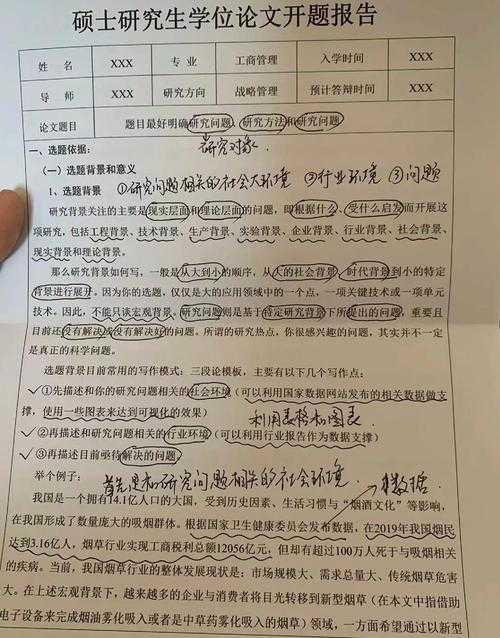 硕士研究生学位论文开题报告
姓 名 XXX 专 业 工商管理 入学时间 XXX
导 师 XXX 研究方向 战略管理 预计答辩时间 XXX
论文题目 题目最好明确研究问题、研究方法和研究问题
研究对象
一、选题依据:
(一)选题背景和意义
1、选题背景 ①研究问题相关的社会大环境 ②行业环境 ③问题
研究背景关注的主要是现实层面和理论层面的问题,即根据什么、受什么启发而开展这
项研究,包括工程背景、技术背景、生产背景、实验背景、企业背景、行业背景、社会背景、
现实背景和理论背景。
那么研究背景如何写,一般是从大到小的顺序,从大的社会背景、时代背景到小的特定
背景进行展开。因为你的选题,仅仅是大的应用领域中的一个点,一项关键技术或一项单元
技术。因此,不能只谈宏观背景。研究问题则是基于特定研究背景下所提出的问题,重要且
目前还没有解决或没有解决好的问题。所谓的研究热点,你很感兴趣的问题,其实并不一定
是真正的科学问题。
选题背景目前常用的写作模式:三段论模板,主要有以下几个写作点:
✓①先描述和你的研究问题相关的社会环境(可以利用国家数据网站发布的相关数据做支
撑,使用一些图表来达到可视化的效果)
利用表格和图表
✓②再描述和研究问题相关的行业环境(可以利用行业报告作为数据支撑)
✓③再描述目前亟待解决的问题。
举个例子: 首先是和研究问题相关的社会环境 数据
我国是一个拥有14.1亿人口的大国,受到历史因素、生活习惯与“烟酒文化”等影响,
在我国形成了数量庞大的吸烟群体。根据国家卫生健康委员会发布数据,在2019年我国烟民
达到3.16亿人,烟草行业实现工商税利总额12056亿元,但却有超过100万人死于与吸烟相关
的疾病。当前,我国烟草行业的整体发展现状是:市场规模大、需求总量大、传统烟草危害
大。在上述宏观背景下,越来越多的企业与消费者将目光转移到新型烟草(在本文中指借助
电子设备来完成烟油雾化吸入或者是中草药雾化吸入的烟草)领域,一方面希望通过以新型